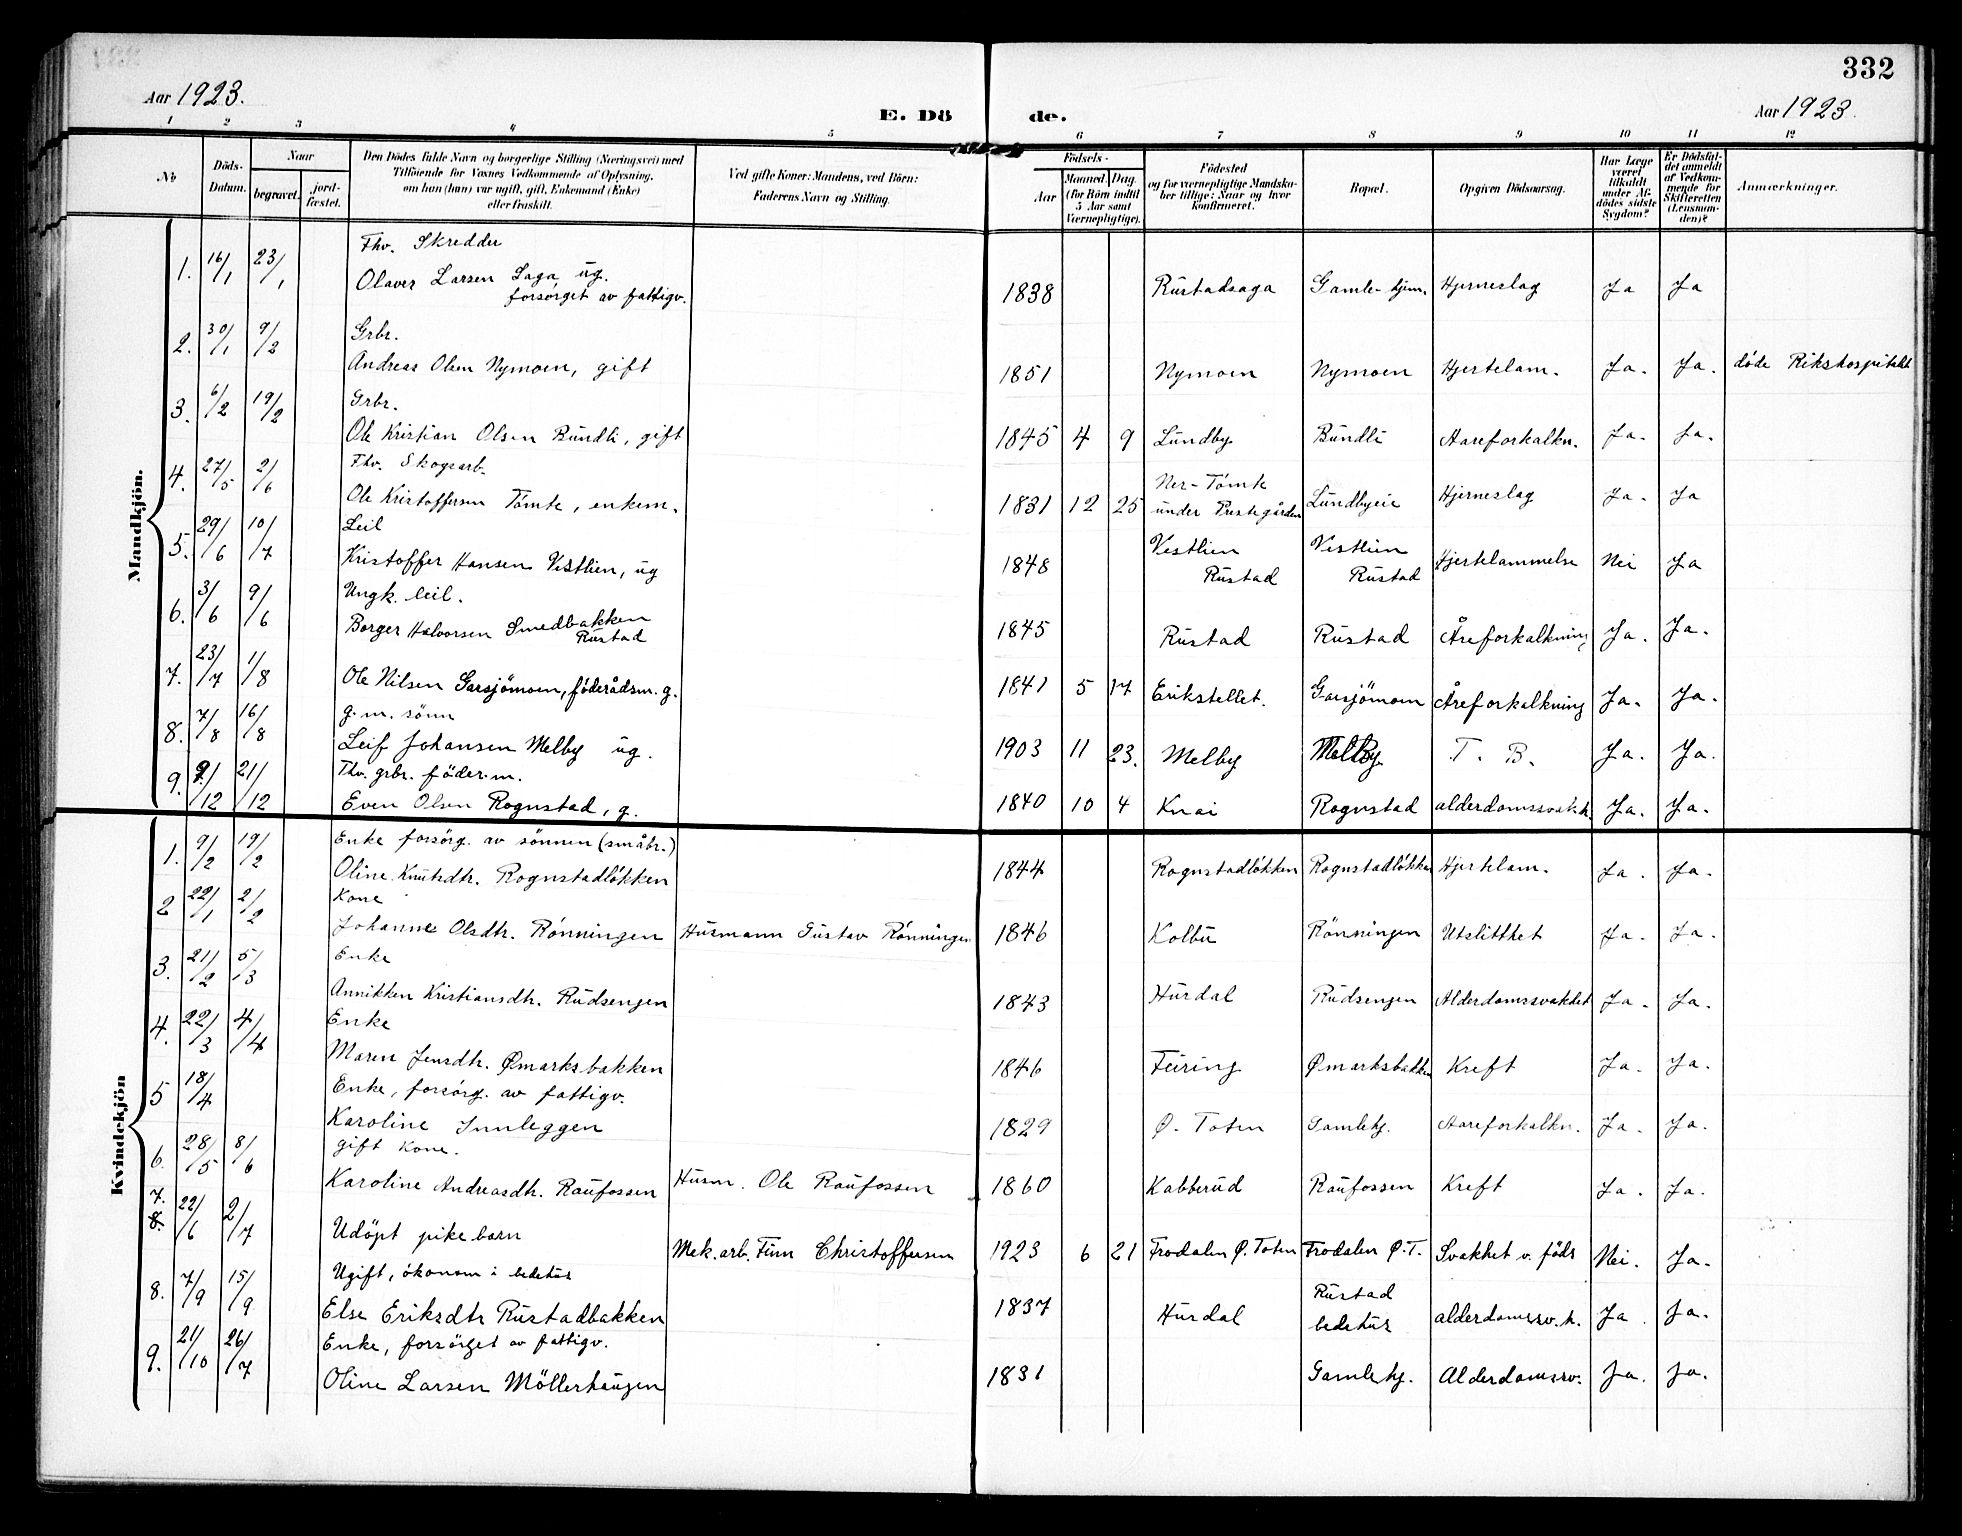 332
Aar 1923.
E. Döde.
Aar 1923.
1 2 3 4 5 6 7 8 9 10 11 12
No
Döds-Datum.
Naar
begravet.
jord-fæstet.
Den Dödes fulde Navn og borgerlige Stilling (Næringsvei) med
Tilföiende for Voxnes Vedkommende af Oplysning,
om han (hun) var ugift, gift, Enkemand (Enke)
eller fraskilt.
Ved gifte Koner: Mandens, ved Börn:
Faderens Navn og Stilling.
Födsels-
Aar
Maaned. Dag.
(for Börn indtil
5 Aar samt
Værnepligtige).
Födested
og for værnepligtige Mandska-
ber tillige: Naar og hvor
konfirmeret.
Bopæl.
Opgiven Dödsaarsag.
Har Læge
været
tilkaldt
under Af-
dödes sidste
Sygdom?
Er Dödsfal-
det anmeldt
af Vedkom-
mende for
Skifteretten
(Lensman-
den)?
Anmærkninger.
Mandkjön.
Fhv. Skredder
1. 16/1 23/1 Olaver Larsen Saga ug. 1838 Rustadsaga Gamle-hjem. Hjerneslag Ja Ja
forsörget av fattigv.
Grbr.
2. 30/1 9/2 Andreas Olsen Nymoen, gift 1851 Nymoen Nymoen Hjertelam. Ja. Ja. döde Rikshospitalet
Grbr.
3. 6/2 19/2 Ole Kristian Olsen Bundli, gift 1845 4 9 Lundby Bundli Aareforkalkn. Ja. Ja.
Fhv. Skogsarb.
4. 27/5 2/6 Ole Kristoffersen Tömte, enkem. 1831 12 25 Ner-Tömte under Prestegården Lundbyeie Hjerneslag Ja. Ja
Leil
5. 29/6 10/7 Kristoffer Hansen Vestlien, ug 1848 Vestlien Rustad Vestlien Rustad Hjertelammelse Nei Ja
Ungk. leil.
6. 3/6 9/6 Borger Halvorsen Smedbakken Rustad 1845 Rustad Rustad Åreforkalkning Ja. Ja.
7. 23/7 1/8 Ole Nilsen Garsjömoen, föderådsm. g. 1841 5 17 Erikstellet. Garsjömoen Åreforkalkning Ja. Ja.
g.m. sönn
8. 7/8 16/8 Leif Johansen Melby ug. 1903 11 23. Melby Melby T. B. Ja. Ja.
Fhv. grbr. föder.m.
9. 9/12 21/12 Even Olsen Rognstad, g. 1840 10 4 Knai Rognstad alderdomssvakh. Ja. Ja.
Kvindekjön
Enke forsörg. av sönnen (småbr.)
1. 9/2 19/2 Oline Knutsdtr. Rognstadlökken 1844 Rognstadlökken Rognstadlökken Hjertelam. Ja. Ja.
Kone
2 22/1 2/2 Johanne Olsdtr. Rönningen Husmann Gustav Rönningen 1846 Kolbu Rönningen Utslitthet Ja. Ja.
Enke
3. 21/2 5/3 Annikken Kristiansdtr. Rudsengen 1843 Hurdal Rudsengen Alderdomssvakhet Ja. Ja.
Enke
4. 22/3 4/4 Maren Jensdtr. Ømarksbakken 1846 Feiring Ømarksbakken Kreft Ja. Ja.
Enke, forsörg. av fattigv.
5 18/4 Karoline Innleggen 1829 Ø. Toten Gamlehj. Aareforkalkn. Ja. Ja.
gift Kone.
6. 28/5 8/6 Karoline Andreasdtr. Raufossen Husm. Ole Raufossen 1860 Kabberud Raufossen Kreft Ja. Ja.
7. 8. 22/6 2/7 Udöpt pikebarn Mek.arb. Finn Christoffersen 1923 6 21 Frodalen Ø. Toten Frodalen Ø.T. Svakhet v. föds Nei. Ja.
Ugift, ökonom i bedehus
8. 7/9 15/9 Else Eriksdtr Rustadbakken 1837 Hurdal Rustad bedehus alderdomssv.h. Ja. Ja.
Enke, forsörget av fattigv.
9. 21/10 26/7 Oline Larsen Möllerhaugen 1831 Gamlehj. Alderdomssv. Ja. Ja.